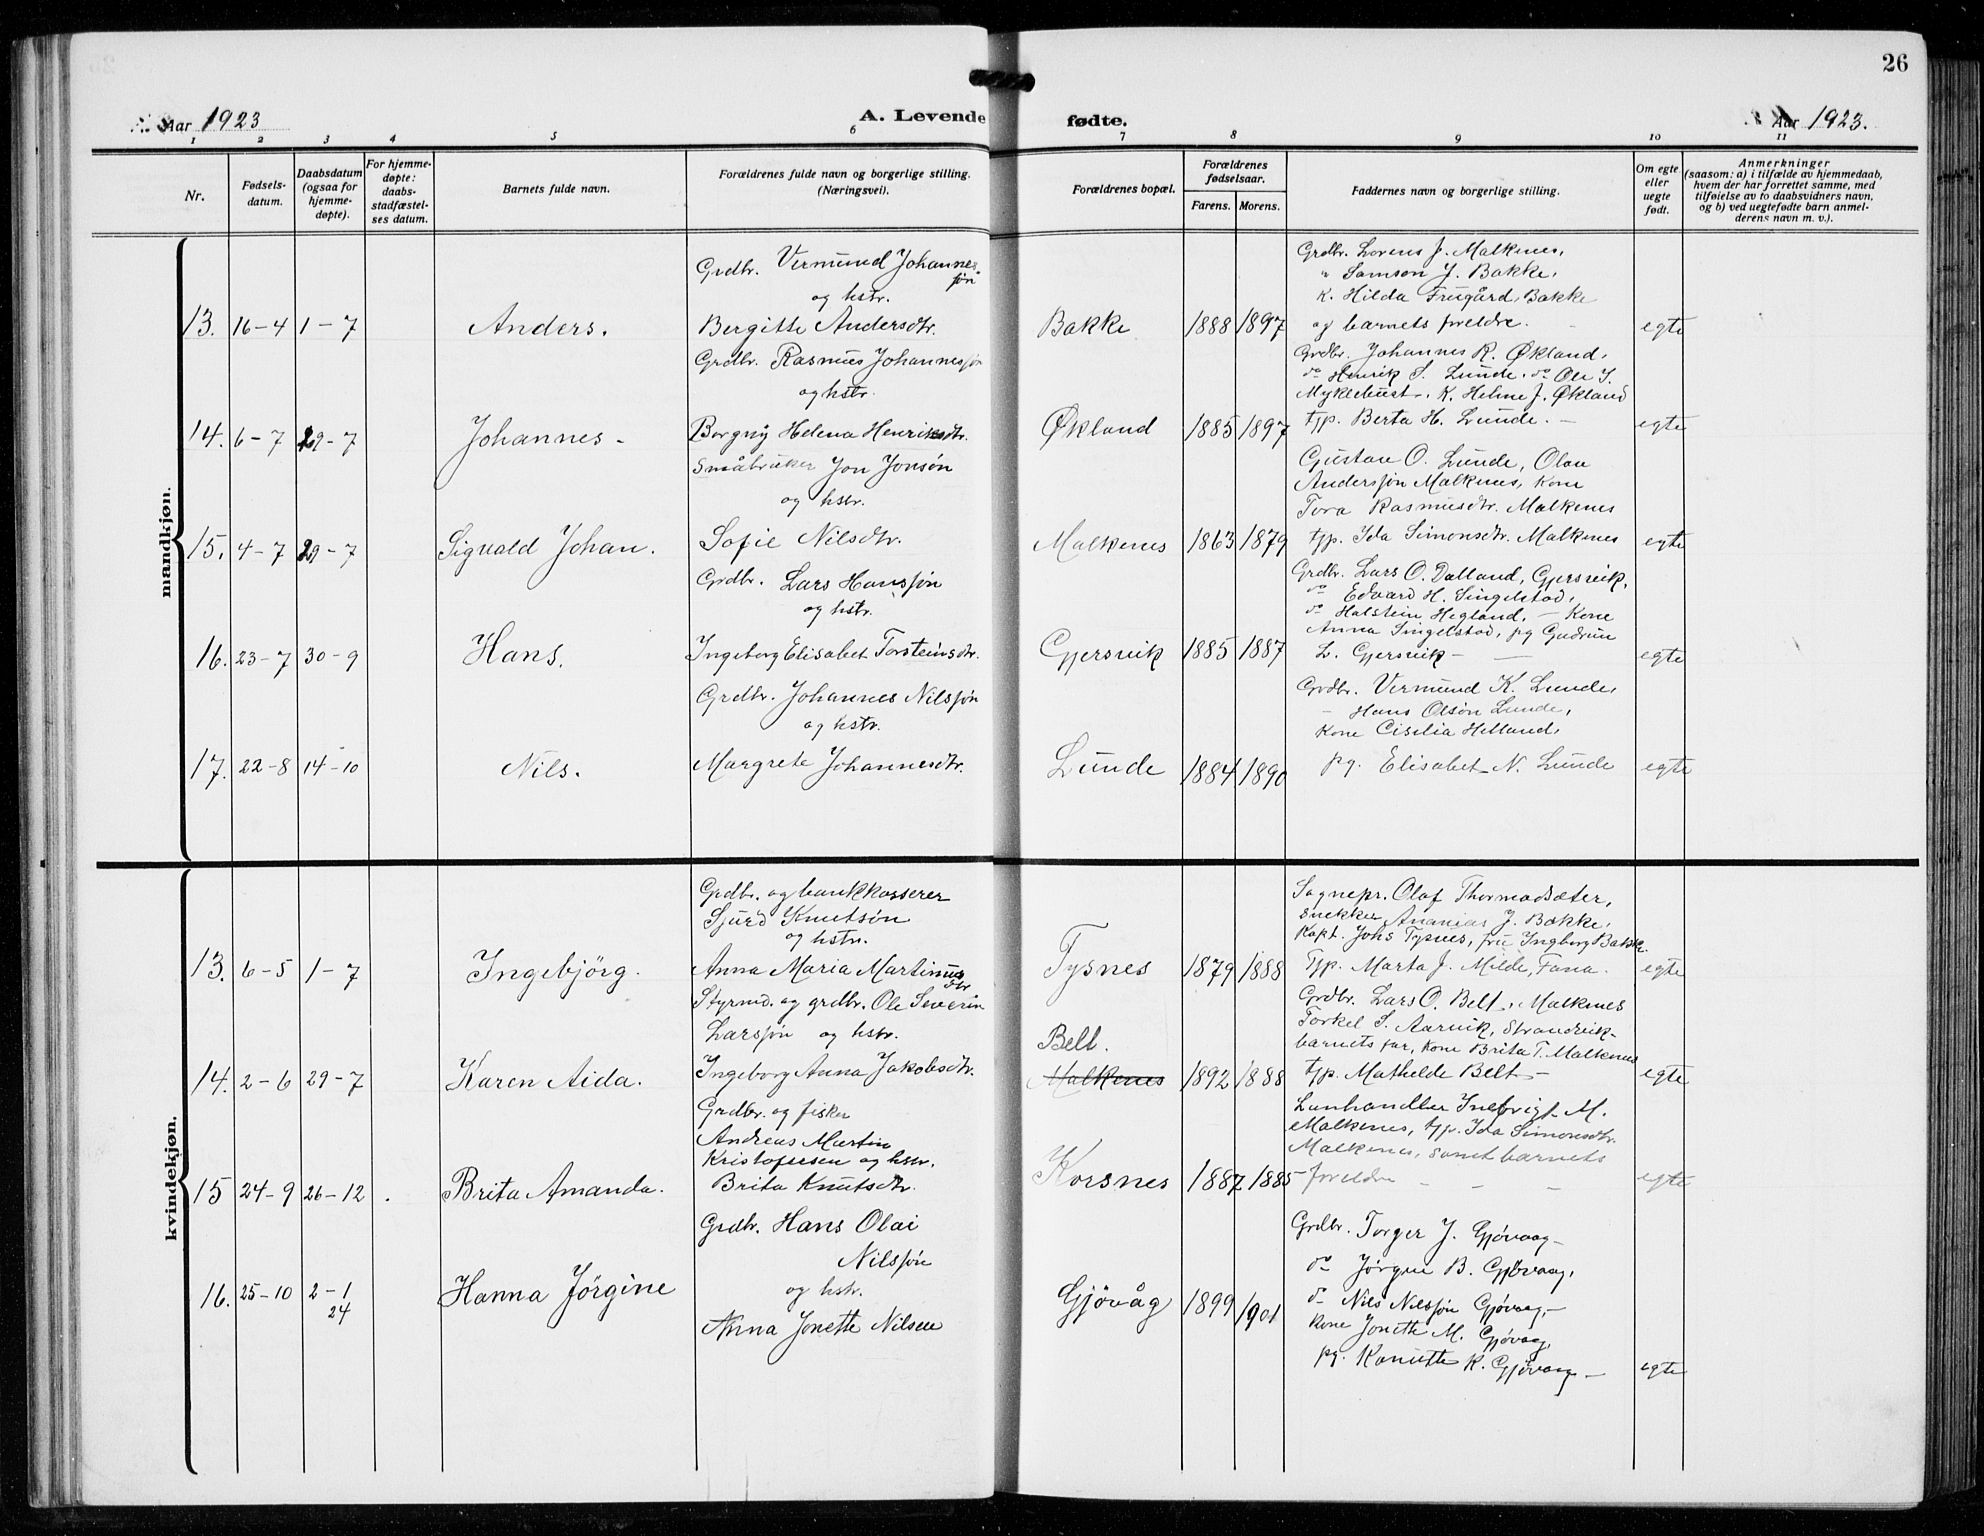 26
Aar 1923
A. Levende fødte.
Aar 1923.
1 2 3 4 5 6 7 8 9 10 11
Nr.
Fødsels-
datum.
Daabsdatum
(ogsaa for
hjemme-
døpte).
For hjemme-
døpte:
daabs-
stadfæstel-
ses datum.
Barnets fulde navn.
Forældrenes fulde navn og borgerlige stilling.
(Næringsvei).
Forældrenes bopæl.
Forældrenes
fødselsaar.
Farens. Morens.
Faddernes navn og borgerlige stilling.
Om egte
eller
uegte
født.
Anmerkninger
(saasom: a) i tilfælde av hjemmedaab,
hvem der har forrettet samme, med
tilføielse av to daabsvidners navn,
og b) ved uegtefødte barn anmel-
derens navn m. v.).
mandkjøn.
13. 16-4 1-7 Anders.
Grdbr. Vermund Johannes-
søn
og hstr.
Bergitte Andersdtr.
Bakke 1888 1897
Grdbr. Lorens J. Malkenes,
" Samson J. Bakke,
K. Hilda Frugård, Bakke
og barnets foreldre. -
egte
14. 6-7 29-7 Johannes -
Grdbr. Rasmus Johannessøn
og hstr.
Borgny Helena Henriksdtr.
Økland 1885 1897
Grdbr. Johannes R. Økland,
do Henrik S. Lunde, do Ole J.
Myklebust, K. Helene J. Økland
tjp. Berta H. Lunde. -
egte
15. 4-7 29-7 Sigvald Johan.
Småbruker Jon Jonsøn
og hstr.
Sofie Nilsdtr.
Malkenes 1863 1879
Gustav O. Lunde, Olav
Andersøn Malkenes, Kone
Tora Rasmusdtr. Malkenes
tjp. Ida Simonsdtr. Malkenes
egte
16. 23-7 30-9 Hans.
Grdbr. Lars Hanssøn
og hstr.
Ingeborg Elisabet Torsteinsdtr.
Gjersvik 1885 1887
Grdbr. Lars O. Dalland, Gjersvik,
do Edvard H. Singelstad,
do Halstein Hegland, - Kone
Anna Singelstad, pg Gudrun
L. Gjersvik -
egte
17. 22-8 14-10 Nils.
Grdbr. Johannes Nilssøn
og hstr.
Margrete Johannesdtr.
Lunde 1884 1890
Grdbr. Vermund K. Lunde,
- Hans Olsøn Lunde,
Kone Cisilia Helland,
pg. Elisabet N. Lunde
egte
kvindekjøn.
13. 6-5 1-7 Ingebjörg.
Grdbr. og bankkasserer
Sjurd Knutsøn
og hstr.
Anna Maria Martinus
dtr
Tysnes 1879 1888
Sognepr. Olaf Thormodsæter,
snekker Ananias J. Bakke,
Kapt. Johs Tysnes, fru Ingborg Bakke
Tjp. Marta J. Milde, Fana.
egte
14. 2-6 29-7 Karen Aida.
Styrmd. og grdbr. Ole Severin
Larssøn og hstr.
Ingeborg Anna Jakobsdtr.
Belt.
Malkenes 1892 1888
Grdbr. Lars O. Belt, Malkenes
Torkel S. Aarvik, Strandvik-
barnets far, Kone Brita T. Malkenes
tjp. Mathilde Belt -
egte
15 24-9 26-12 Brita Amanda.
Grdbr. og fisker
Andreas Martin
Kristofersen og hstr.
Brita Knutsdtr.
Korsnes 1887 1885
Lanhandler Inebrigt M.
Malkenes, tjp. Ida Simonsdtr.
Malkenes, samt barnets
foreldre - - -
egte
16. 25-10 2-1
24
Hanna Jörgine
Grdbr. Hans Olai
Nilssøn
og hstr.
Anna Jonette Nilsen
Gjövåg 1899 1901
Grdbr. Torger J. Gjövaag -
do Jørgen B. Gjövaag,
do Nils Nilssøn Gjövaag, -
Kone Jonette M. Gjövaag,
pg. Kanutte K. Gjövaag -
egte